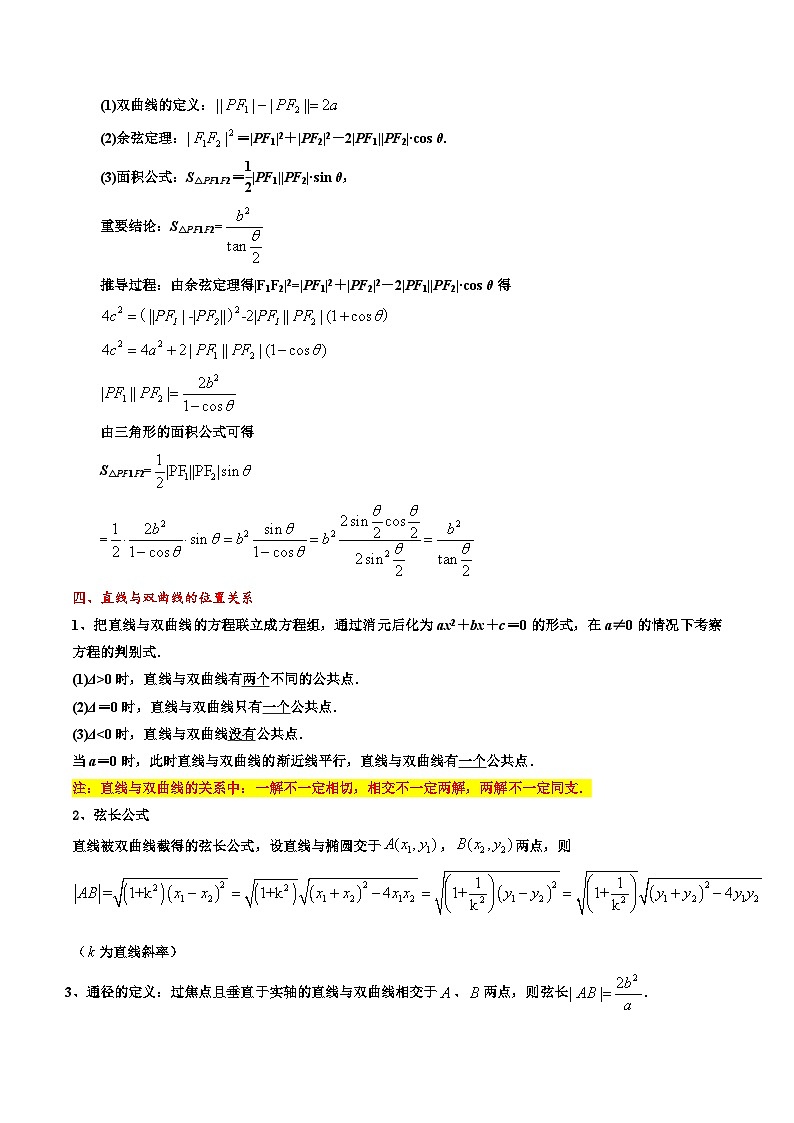 (1)双曲线的定义：|| PF₁ | − | PF₂ ||= 2a
(2)余弦定理：| F₁F₂ |²＝|PF₁|²＋|PF₂|²－2|PF₁||PF₂|·cos θ.
(3)面积公式：S△PF1F2＝1/2|PF₁||PF₂|·sin θ，
重要结论：S△PF1F2= b²/tan(θ/2)
推导过程：由余弦定理得|F1F2|²=|PF₁|²＋|PF₂|²－2|PF₁||PF₂|·cos θ 得
4c² =（||PF₁ | -|PF₂||）²-2|PF₁ || PF₂ | (1+cosθ)
4c² = 4a² + 2 | PF₁ || PF₂ | (1−cosθ)
|PF₁ || PF₂ |= 2b²/(1−cosθ)
由三角形的面积公式可得
S△PF1F2= 1/2 |PF₁||PF₂|sin θ
= 1/2 · 2b²/(1−cosθ) · sin θ = b² sin θ/(1−cosθ) = b² (2sin(θ/2)cos(θ/2))/(2sin²(θ/2)) = b²/tan(θ/2)
四、直线与双曲线的位置关系
1、把直线与双曲线的方程联立成方程组，通过消元后化为 ax²＋bx＋c＝0 的形式，在 a≠0 的情况下考察
方程的判别式．
(1)Δ>0 时，直线与双曲线有两个不同的公共点．
(2)Δ＝0 时，直线与双曲线只有一个公共点．
(3)Δ<0 时，直线与双曲线没有公共点．
当 a＝0 时，此时直线与双曲线的渐近线平行，直线与双曲线有一个公共点．
注：直线与双曲线的关系中：一解不一定相切，相交不一定两解，两解不一定同支．
2、弦长公式
直线被双曲线截得的弦长公式，设直线与椭圆交于 A(x₁, y₁) ，B(x₂, y₂) 两点，则
|AB|=√((1+k²)(x₁−x₂)²) = √(1+k²) √((x₁+x₂)²−4x₁x₂) = √((1+1/k²)(y₁−y₂)²) = √(1+1/k²) √((y₁+y₂)²−4y₁y₂)
（k 为直线斜率）
3、通径的定义：过焦点且垂直于实轴的直线与双曲线相交于 A 、B 两点，则弦长| AB |= 2b²/a .